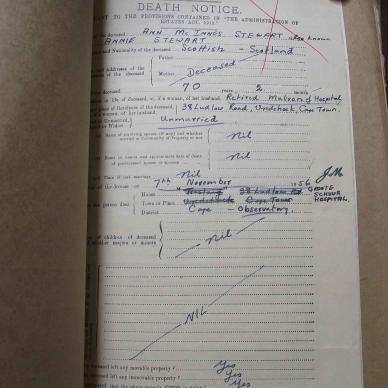 DEATH NOTICE.
NT TO THE PROVISIONS CONTAINED IN "THE ADMINISTRATION OF
ESTATES ACT, 1913."
the deceased ANN Mc INNES STEWART also known
ANNIE STEWART
and Nationality of the deceased Scottish - Scotland
Father
and addresses of the
of the deceased
Mother Deceased
the deceased 70 years 2 months
in life of deceased, or, if a woman, of her husband. Retired Matron of Hospital,
Place of Residence of the deceased, 38 Ludlow Road, Vredehoek, Cape Town.
if a woman, of her husband.
Unmarried,
or Widow Unmarried
Name of surviving spouse (if any) and whether
married in Community of Property or not Nil
Name or names and approximate date of death
of predeceased spouse or spouses Nil
Place of last marriage Nil
of the decease on 7th November 1956 JM
House 38 Ludlow Rd GROOTE
person died Town or Place Vredehoek Cape Town SCHUUR
District Cape - Observatory. HOSPITAL.
of children of deceased
whether majors or minors Nil
NIL
deceased left any movable property? Yes
deceased left any immovable property? Yes
Yes